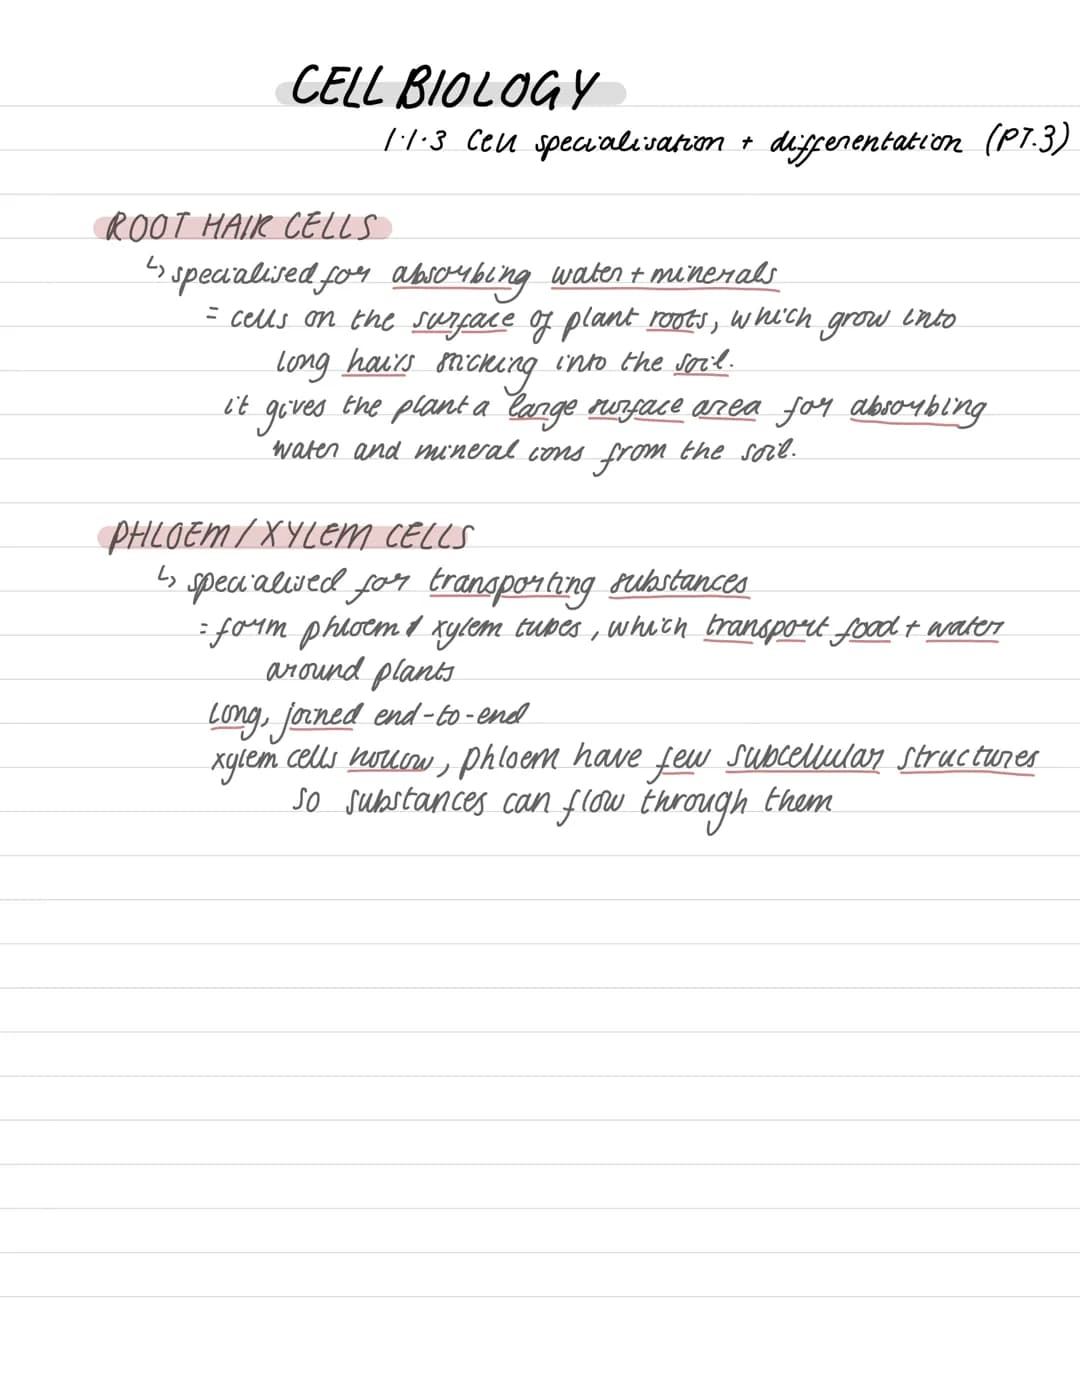 CELL BIOLOGY
1.1.3 Cell specialisation + differentation (PT.3)
ROOT HAIR CELLS
↳ specialised for absorbing water + minerals
= cells on the surface of plant roots, which grow into
long hairs sticking into the soil.
it gives the plant a large surface area for absorbing
water and mineral ions from the soil.
PHLOEM/XYLEM CELLS
↳ specialised for transporting substances
= form phloem & xylem tubes, which transport food + water
around plants
Long, joined end-to-end
xylem cells hollow, phloem have few subcellular structures
so substances can flow through them